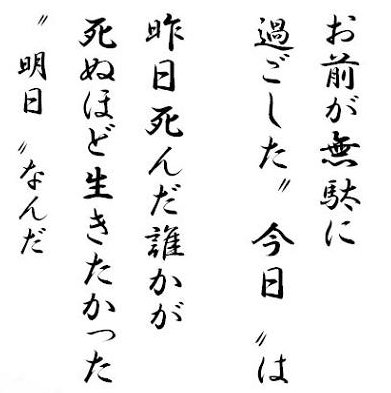 お前が無駄に
過ごした〝今日〟は
昨日死んだ誰かが
死ぬほど生きたかった
〝明日〟なんだ